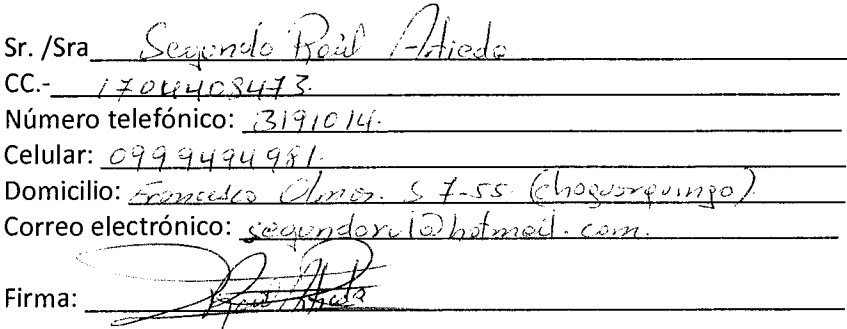 Sr. /Sra Segundo Raúl Artieda
CC.- 1704408473.
Número telefónico: 3191014.
Celular: 0999494981.
Domicilio: Francisco Olmos. S 7-55 (chaguarquingo)
Correo electrónico: segundorul@hotmail.com.
Firma: Raúl Artieda